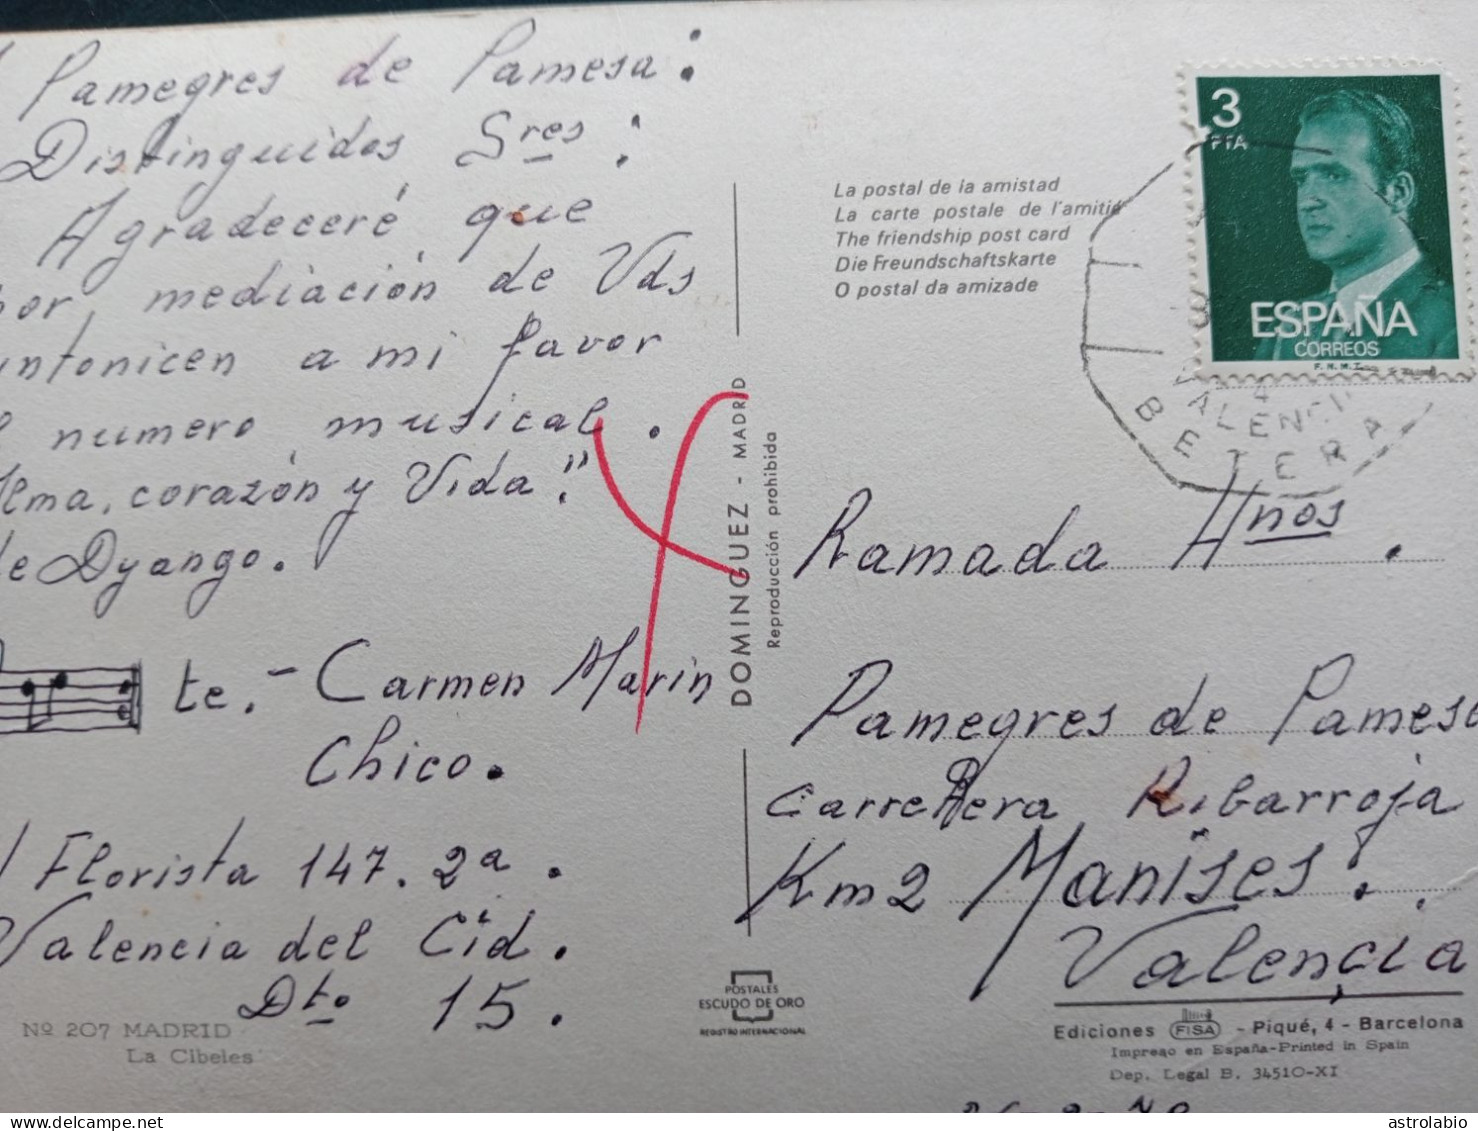 Pamegres de Pamesa:
Distinguidos Sres:
Agradeceré que
por mediación de Vds
sintonicen a mi favor
el numero musical.
"Alma, corazón y Vida".
de Dyango.
te.- Carmen Marin
Chico.
Florista 147. 2ª.
Valencia del Cid.
Dto 15.
Nº 207 MADRID
La Cibeles
DOMINGUEZ - MADRID
Reproducción prohibida
POSTALES
ESCUDO DE ORO
REGISTRO INTERNACIONAL
La postal de la amistad
La carte postale de l'amitié
The friendship post card
Die Freundschaftskarte
O postal da amizade
3
PTA
ESPAÑA
CORREOS
F.N.M.T.
VALENCIA
BETERA
Ramada Hnos.
Pamegres de Pamesa
Carretera Ribarroja
Km 2 Manises.
Valencia
Ediciones FISA - Piqué, 4 - Barcelona
Impreso en España-Printed in Spain
Dep. Legal B. 34510-XI
astrolabio